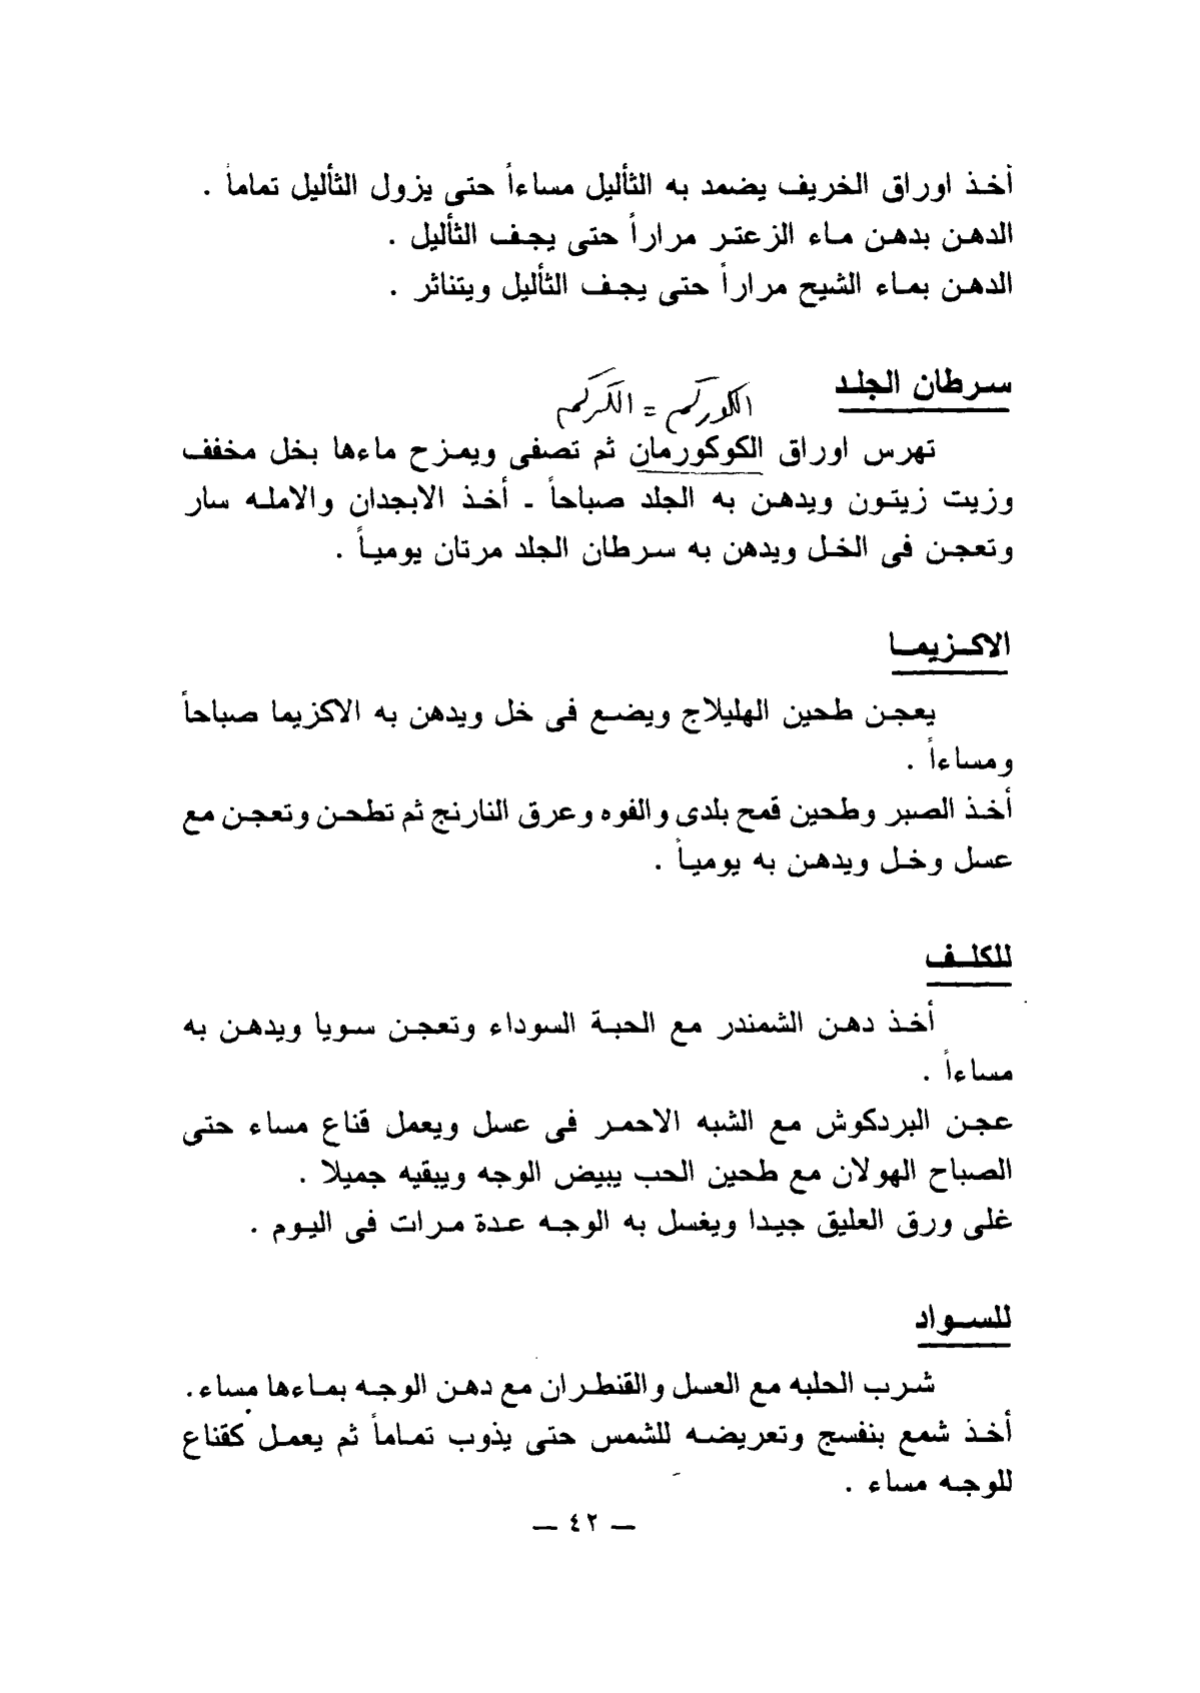 أخذ اوراق الخريف يضمد به الثأليل مساءاً حتى يزول الثأليل تماماً .
الدهن بدهن ماء الزعتر مراراً حتى يجف الثأليل .
الدهن بماء الشيح مراراً حتى يجف الثأليل ويتناثر .
سرطان الجلد
الكوركم = الكركم
تهرس اوراق الكوكورمان ثم تصفى ويمزح ماءها بخل مخفف
وزيت زيتون ويدهن به الجلد صباحاً ـ أخذ الابجدان والامله سار
وتعجن فى الخل ويدهن به سرطان الجلد مرتان يومياً .
الاكزيما
يعجن طحين الهليلاج ويضع فى خل ويدهن به الاكزيما صباحاً
ومساءاً .
أخذ الصبر وطحين قمح بلدى والفوه وعرق النارنج ثم تطحن وتعجن مع
عسل وخل ويدهن به يومياً .
للكلف
أخذ دهن الشمندر مع الحبة السوداء وتعجن سويا ويدهن به
مساءاً .
عجن البردكوش مع الشبه الاحمر فى عسل ويعمل قناع مساء حتى
الصباح الهولان مع طحين الحب يبيض الوجه ويبقيه جميلا .
غلى ورق العليق جيدا ويغسل به الوجه عدة مرات فى اليوم .
للسواد
شرب الحلبه مع العسل والقنطران مع دهن الوجه بماءها مساء .
أخذ شمع بنفسج وتعريضه للشمس حتى يذوب تماماً ثم يعمل كقناع
للوجه مساء .
— ٤٢ —